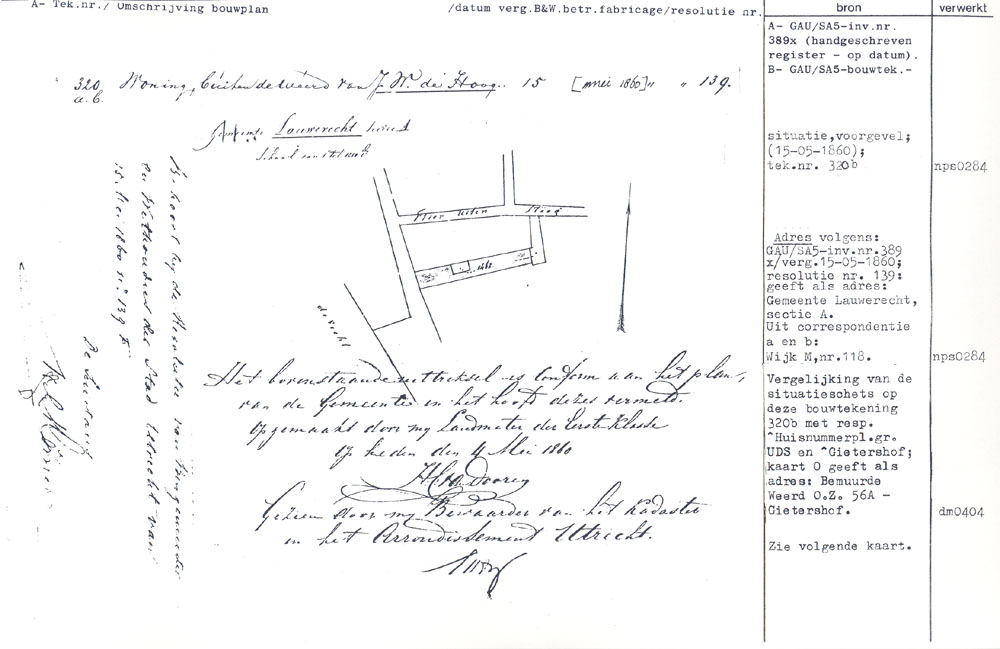 A- Tek.nr./ Omschrijving bouwplan /datum verg.B&W.betr.fabricage/resolutie nr. bron verwerkt
320 Woning, buiten de weerd van J. W. de Hoog. 15 [mei 1860]" " 139.
a.b.
Gemeente Lauwerecht Sectie A
Schaal van 1 tot
1468
de Vecht
Het bovenstaande uittreksel is conform aan het plan,
van de Gemeente in het hoofd dezes vermeld.
Opgemaakt door my Landmeter der Eerste Klasse
Op heden den 4 Mei 1860
Gezien door my Bewaarder van het Kadaster
in het Arrondissement Utrecht.
Behoort by de Resolutie van Burgemeester
en Wethouders der Stad Utrecht van
15 Mei 1860 n. 139
De Secretaris
A- GAU/SA5-inv.nr.
389x (handgeschreven
register - op datum).
B- GAU/SA5-bouwtek.-
situatie,voorgevel;
(15-05-1860);
tek.nr. 320b nps0284
Adres volgens:
GAU/SA5-inv.nr.389
x/verg.15-05-1860;
resolutie nr. 139:
geeft als adres:
Gemeente Lauwerecht,
sectie A.
Uit correspondentie
a en b:
Wijk M,nr.118. nps0284
Vergelijking van de
situatieschets op
deze bouwtekening
320b met resp.
^Huisnummerpl.gr.
UDS en ^Gietershof;
kaart 0 geeft als
adres: Bemuurde
Weerd O.Z. 56A -
Gietershof. dm0404
Zie volgende kaart.